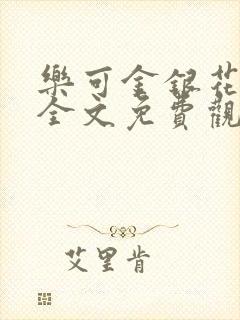 樂可金銀花
全文免費觀
艾里肯